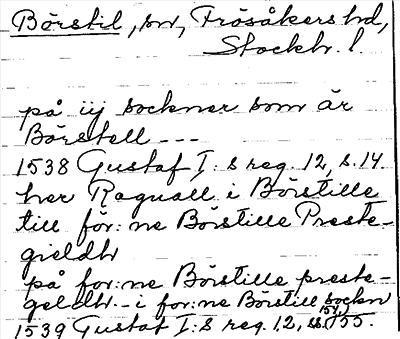 Börstil, sn, Frösåkers hd,
Stockh. l.
på iij sockner som är
Börstell ---
1538 Gustaf I:s reg. 12, s. 14
her Raguall i Börstille
till för:ne Börstille Preste-
gieldh
på for:ne Börstille preste-
geldh. - i for:ne Börstill sockn
1539 Gustaf I:s reg. 12, ss. 154, 155.